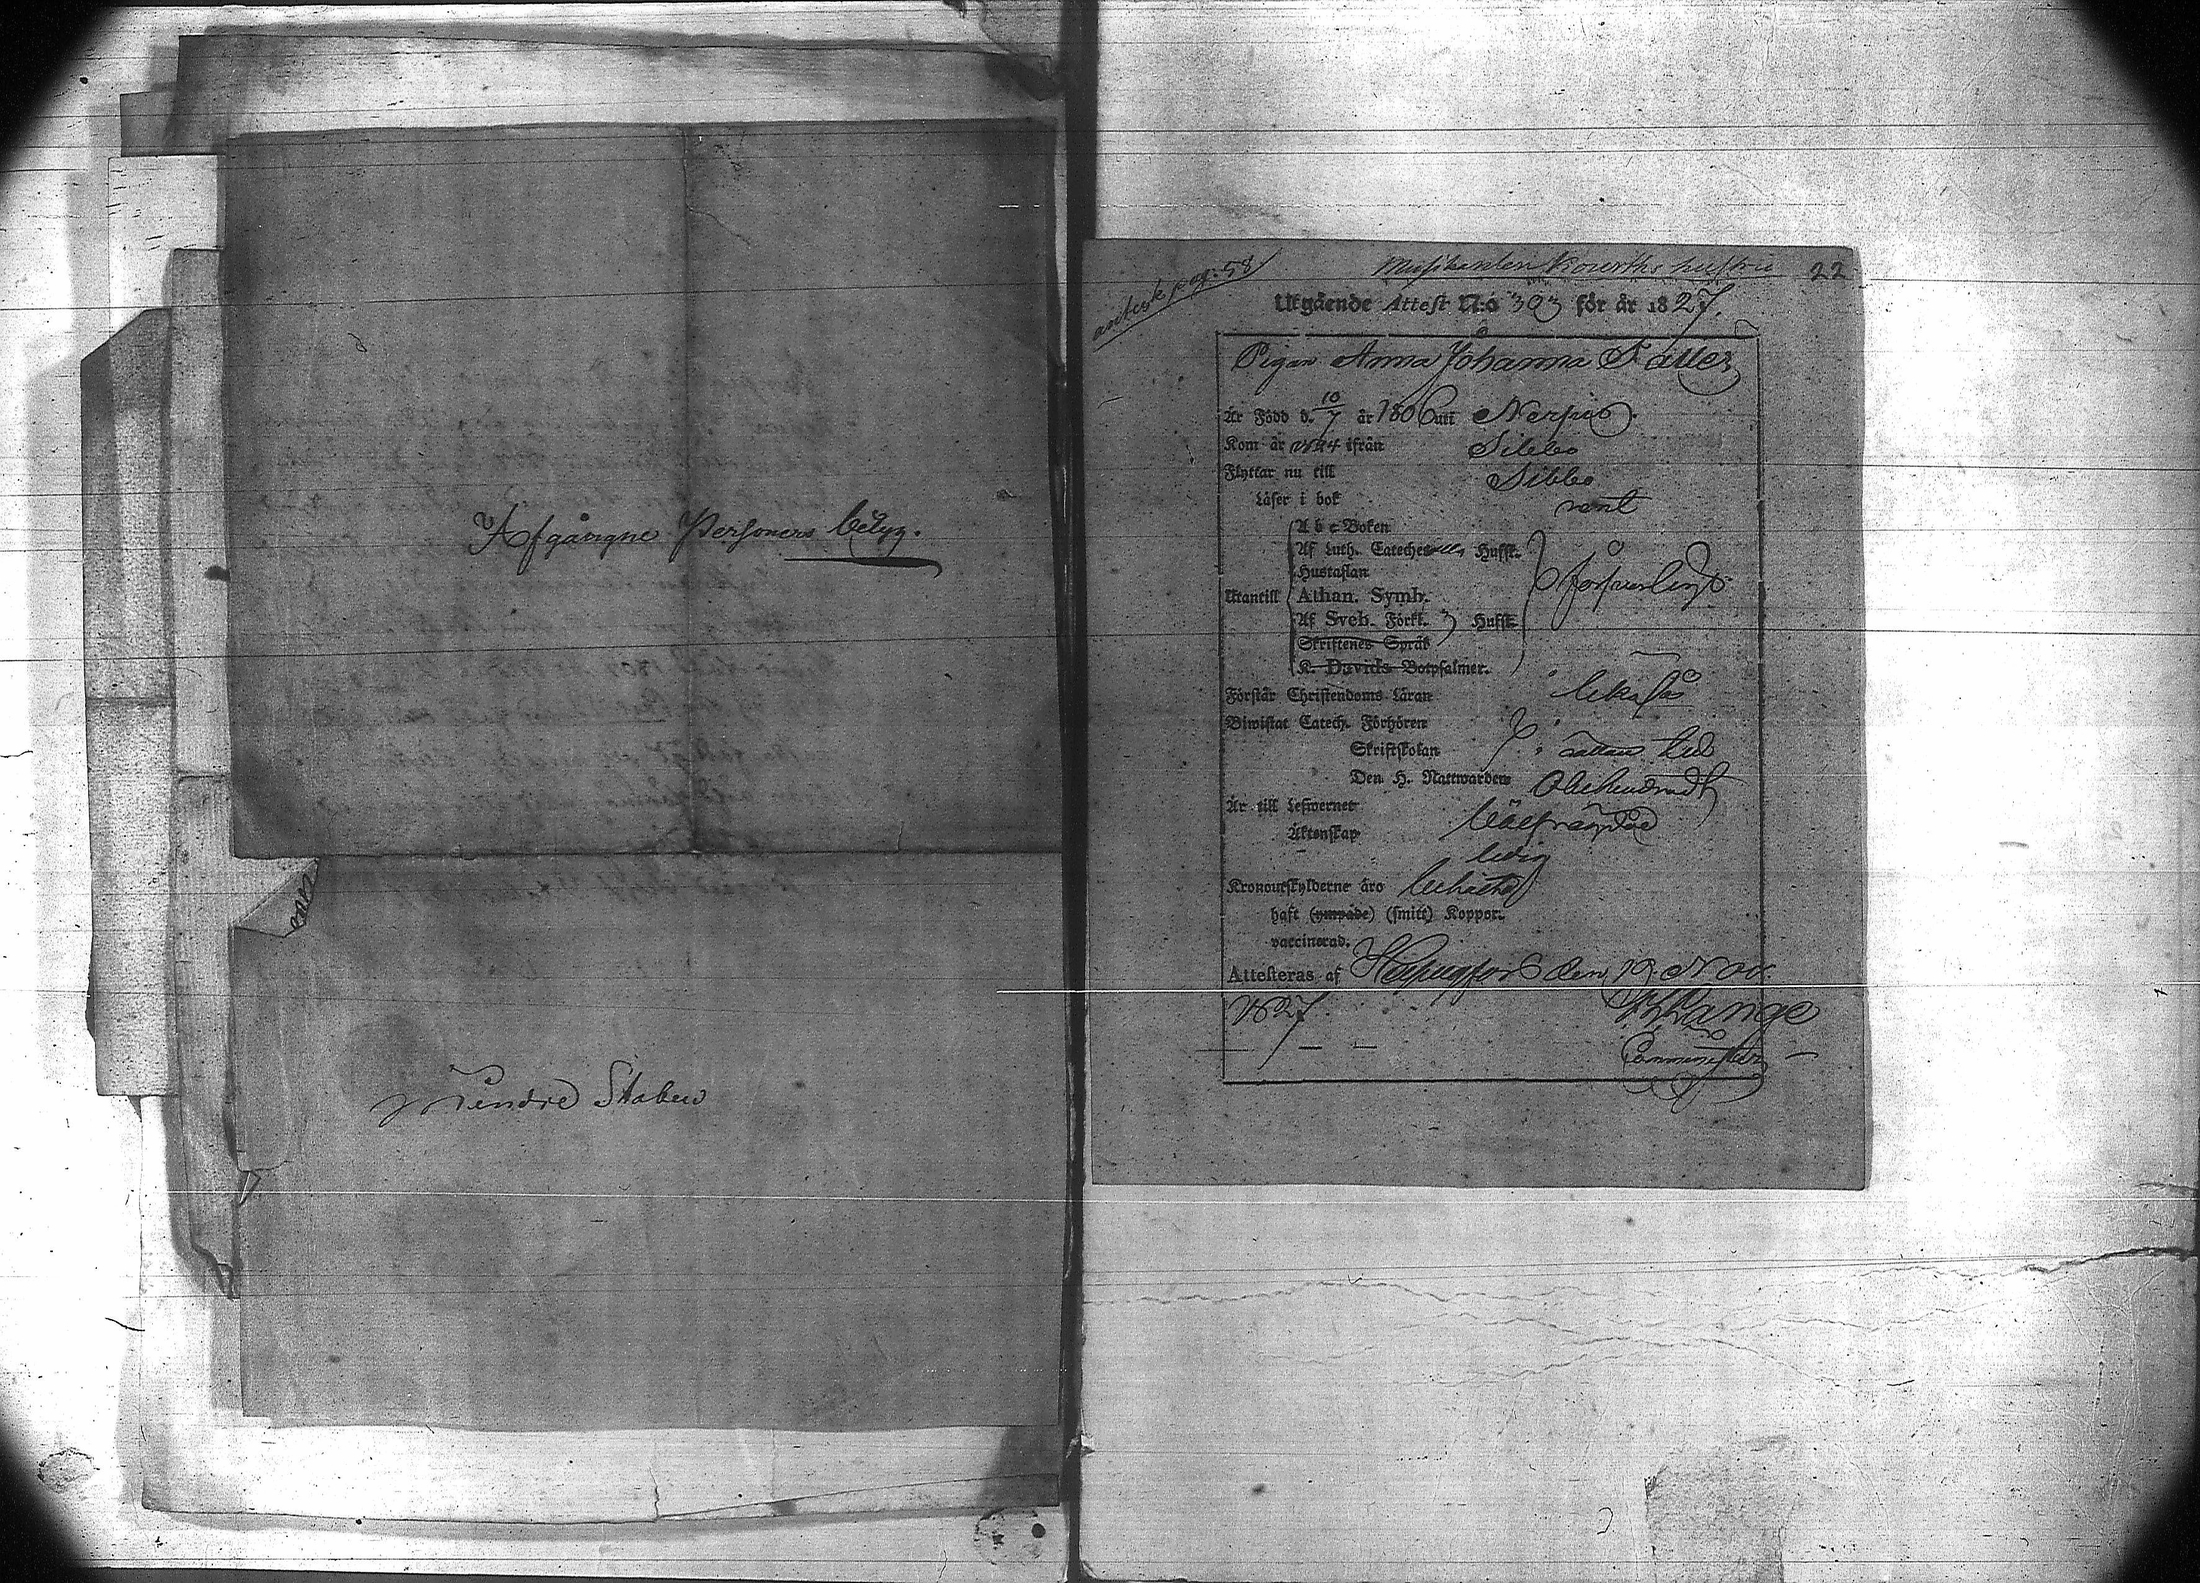 Afgångne Personers betyg.
Mindre Staben
antek pag: 58
Musikanten hustru 22
Utgående Attest N:o 303 för år 1827.
Pigan Anna Johanna
Är Född d. 10/7 år 1806 uti Nerpes
Kom år 1824 ifrån Sibbo
Flyttar nu till Sibbo
Läser i bok rent
A b c Boken
Af Luth. Cateches Huffst.
Hustaflan
Utantill Athan. Symb. försvarligt
Af Sveb. Förkl. Huffst.
Skriftenes Språk
K. Davids Botpsalmer.
Förstår Christendoms Läran likaså
Biwistat Catech. Förhören
Skriftskolan
Den H. Nattwarden Obehindradt
Är till Lefwernet wälfräjdad
Äktenskap ledig
Kronoutskylderne äro
haft (ympade) (smitt) Koppor.
vaccinerad.
Attesteras af Helsingfors den 19 Nov.
1827. Länge
Comminister